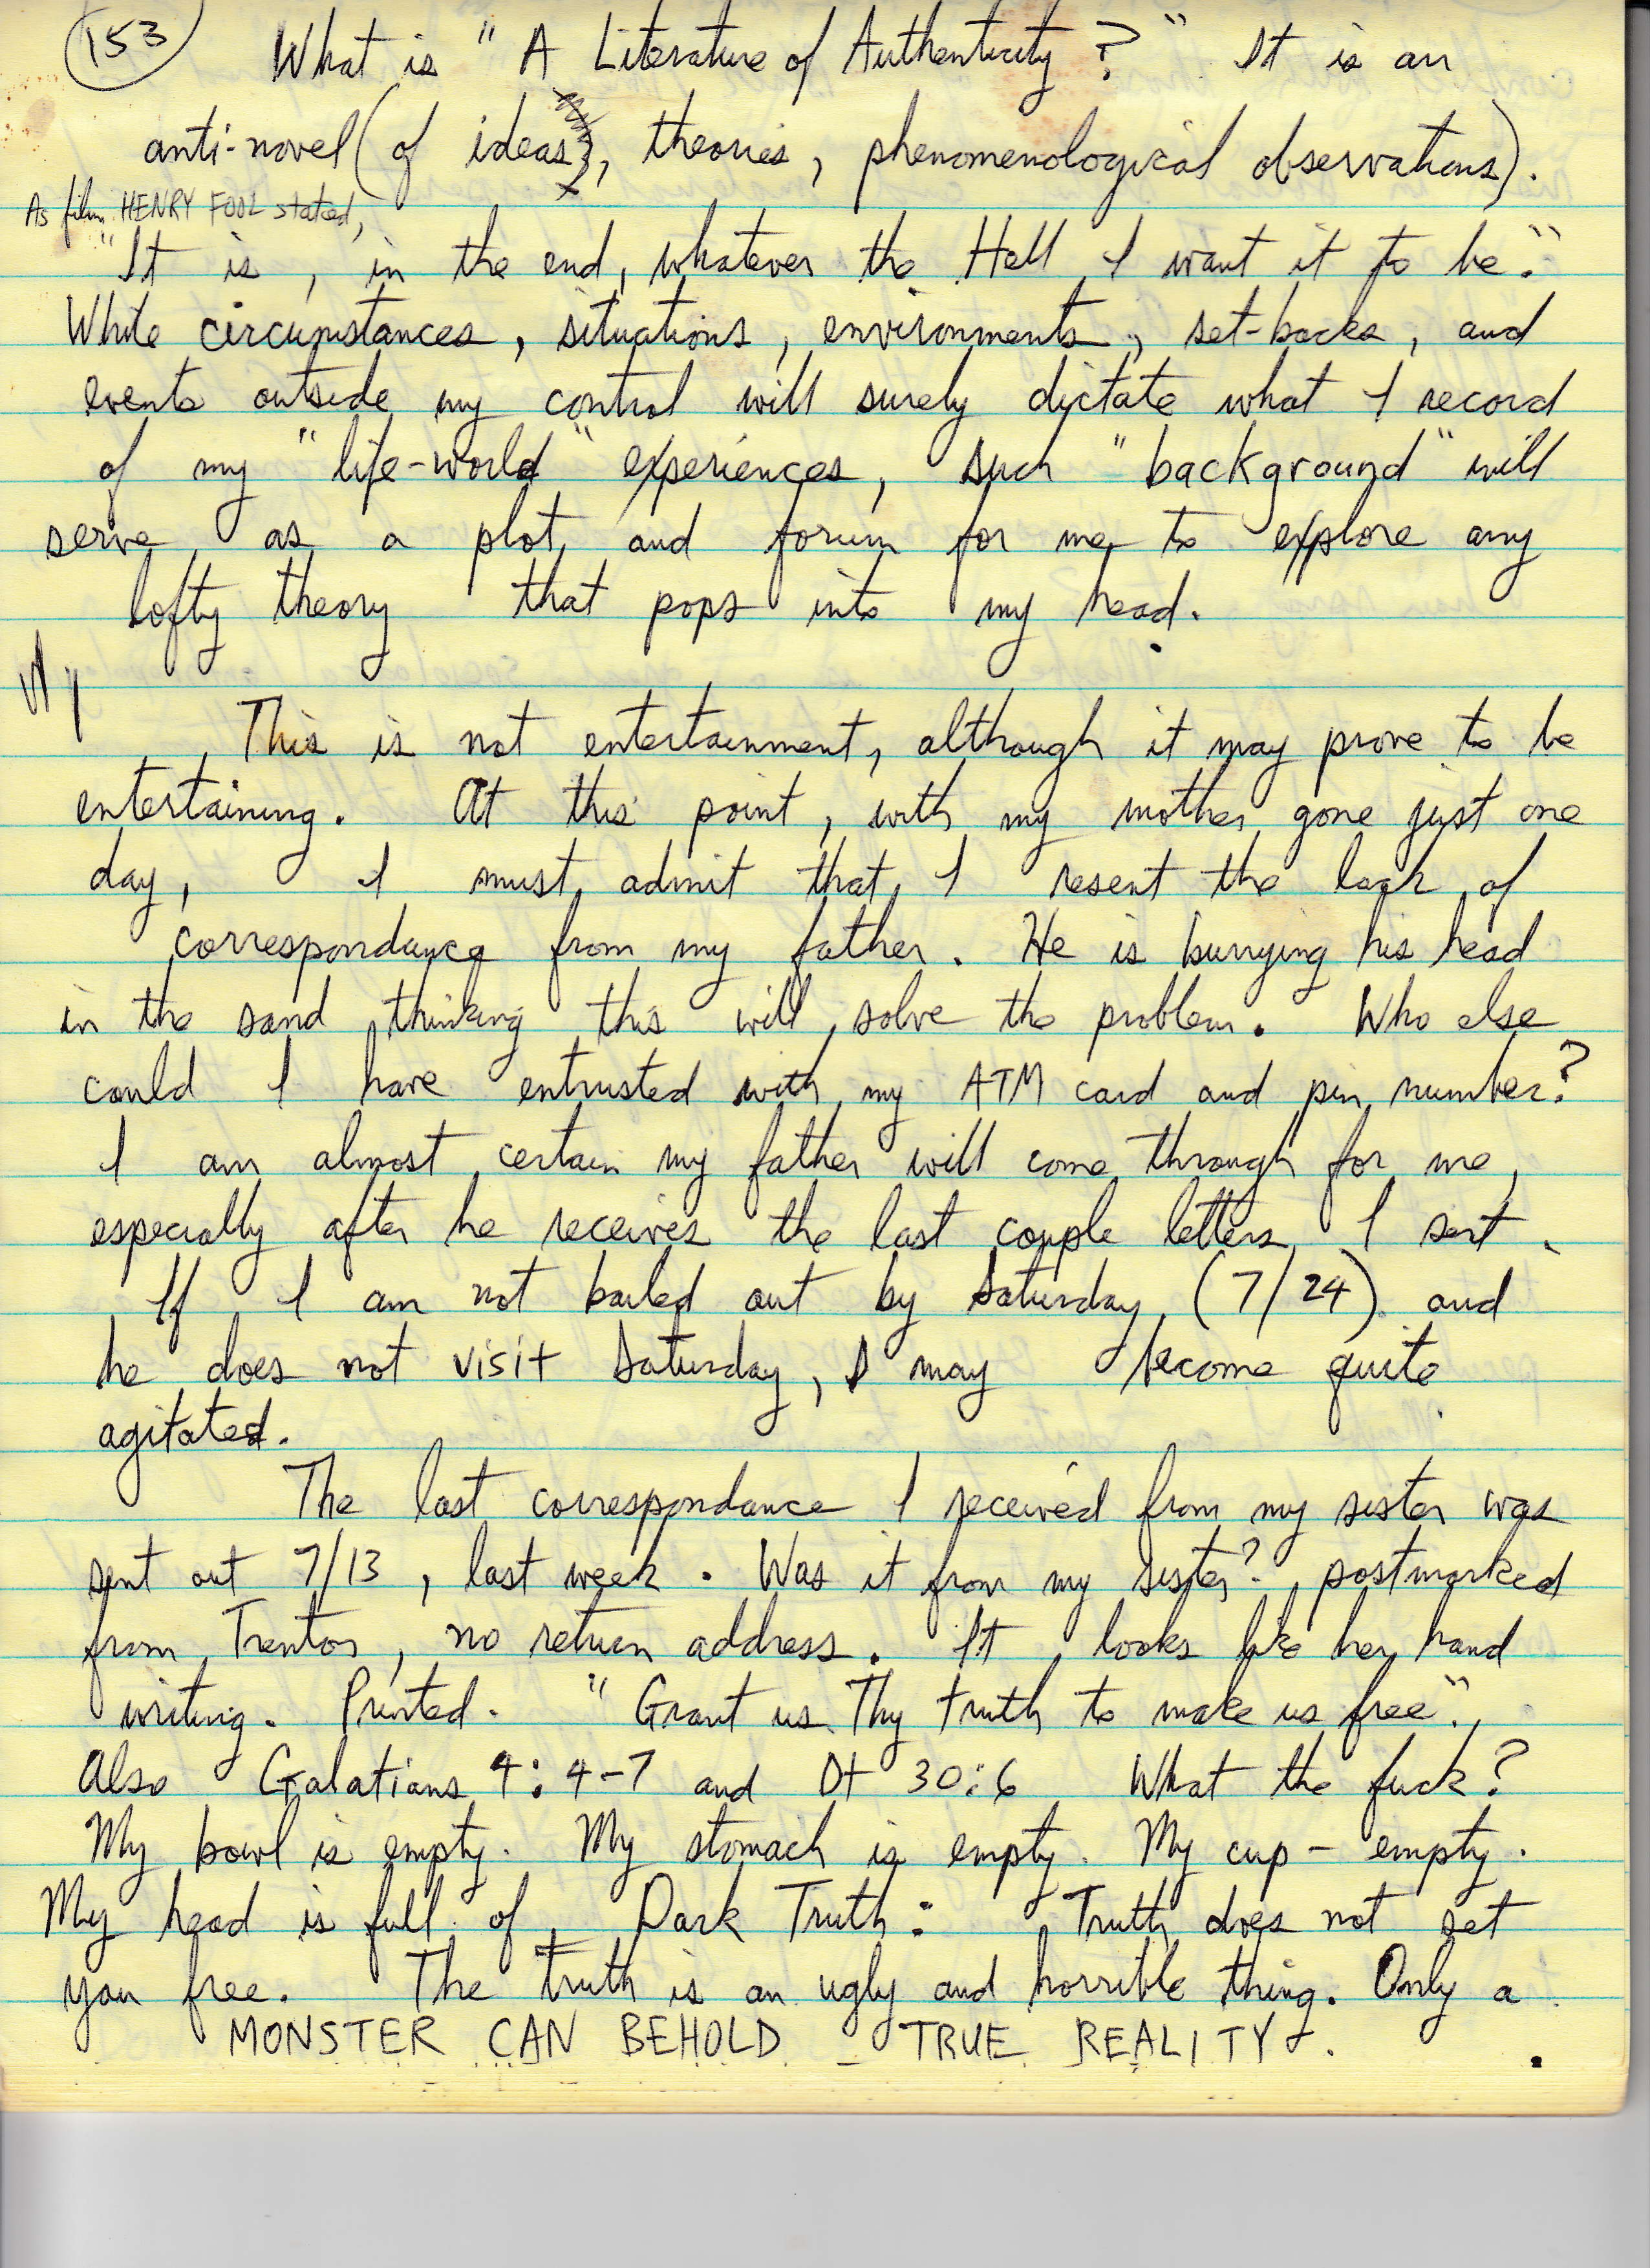 153 What is "A Literature of Authenticity?" It is an
anti-novel (of ideas, theories, phenomenological observations).
As film HENRY FOOL stated,
"It is, in the end, whatever the Hell I want it to be."
While circumstances, situations, environments, set-backs, and
events outside my control will surely dictate what I record
of my "life-world" experiences, such "background" will
serve as a plot and forum for me to explore any
lofty theory that pops into my head.
This is not entertainment, although it may prove to be
entertaining. At this point, with my mother gone just one
day, I must admit that I resent the lack of
correspondance from my father. He is burrying his head
in the sand thinking this will solve the problem. Who else
could I have entrusted with my ATM card and pin number?
I am almost certain my father will come through for me,
especially after he receives the last couple letters I sent.
If I am not bailed out by Saturday (7/24) and
he does not visit Saturday, I may become quite
agitated.
The last correspondance I received from my sister was
sent out 7/13, last week. Was it from my sister? postmarked
from Trenton, no return address. It looks like her hand
writing. Printed. "Grant us Thy truth to make us free".
Also Galatians 4:4-7 and Dt 30:6 What the fuck?
My bowl is empty. My stomach is empty. My cup - empty.
My head is full of Dark Truth: Truth does not set
you free. The truth is an ugly and horrible thing. Only a
MONSTER CAN BEHOLD TRUE REALITY.